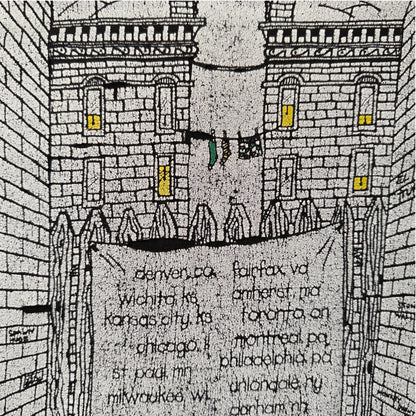 denver, co
wichita, ks
kansas city, ks
chicago, il
st paul, mn
milwaukee, wi
fairfax, va
amherst, ma
toronto, on
montreal, pq
philadelphia, pa
uniondale, ny
durham, nh